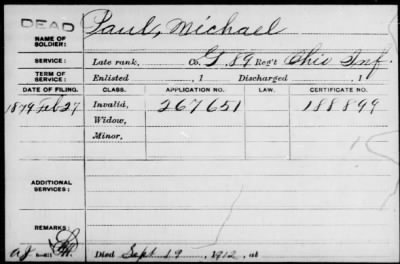 DEAD
NAME OF SOLDIER: Paul, Michael
SERVICE: Late rank, Co. G, 89 Reg't Ohio Inf.
TERM OF SERVICE: Enlisted , 1 Discharged , 1
DATE OF FILING. CLASS. APPLICATION NO. LAW. CERTIFICATE NO.
1879 Feb 27 Invalid, 267651 188899
Widow,
Minor,
ADDITIONAL SERVICES:
REMARKS:
Died Sept 19, 1912, at